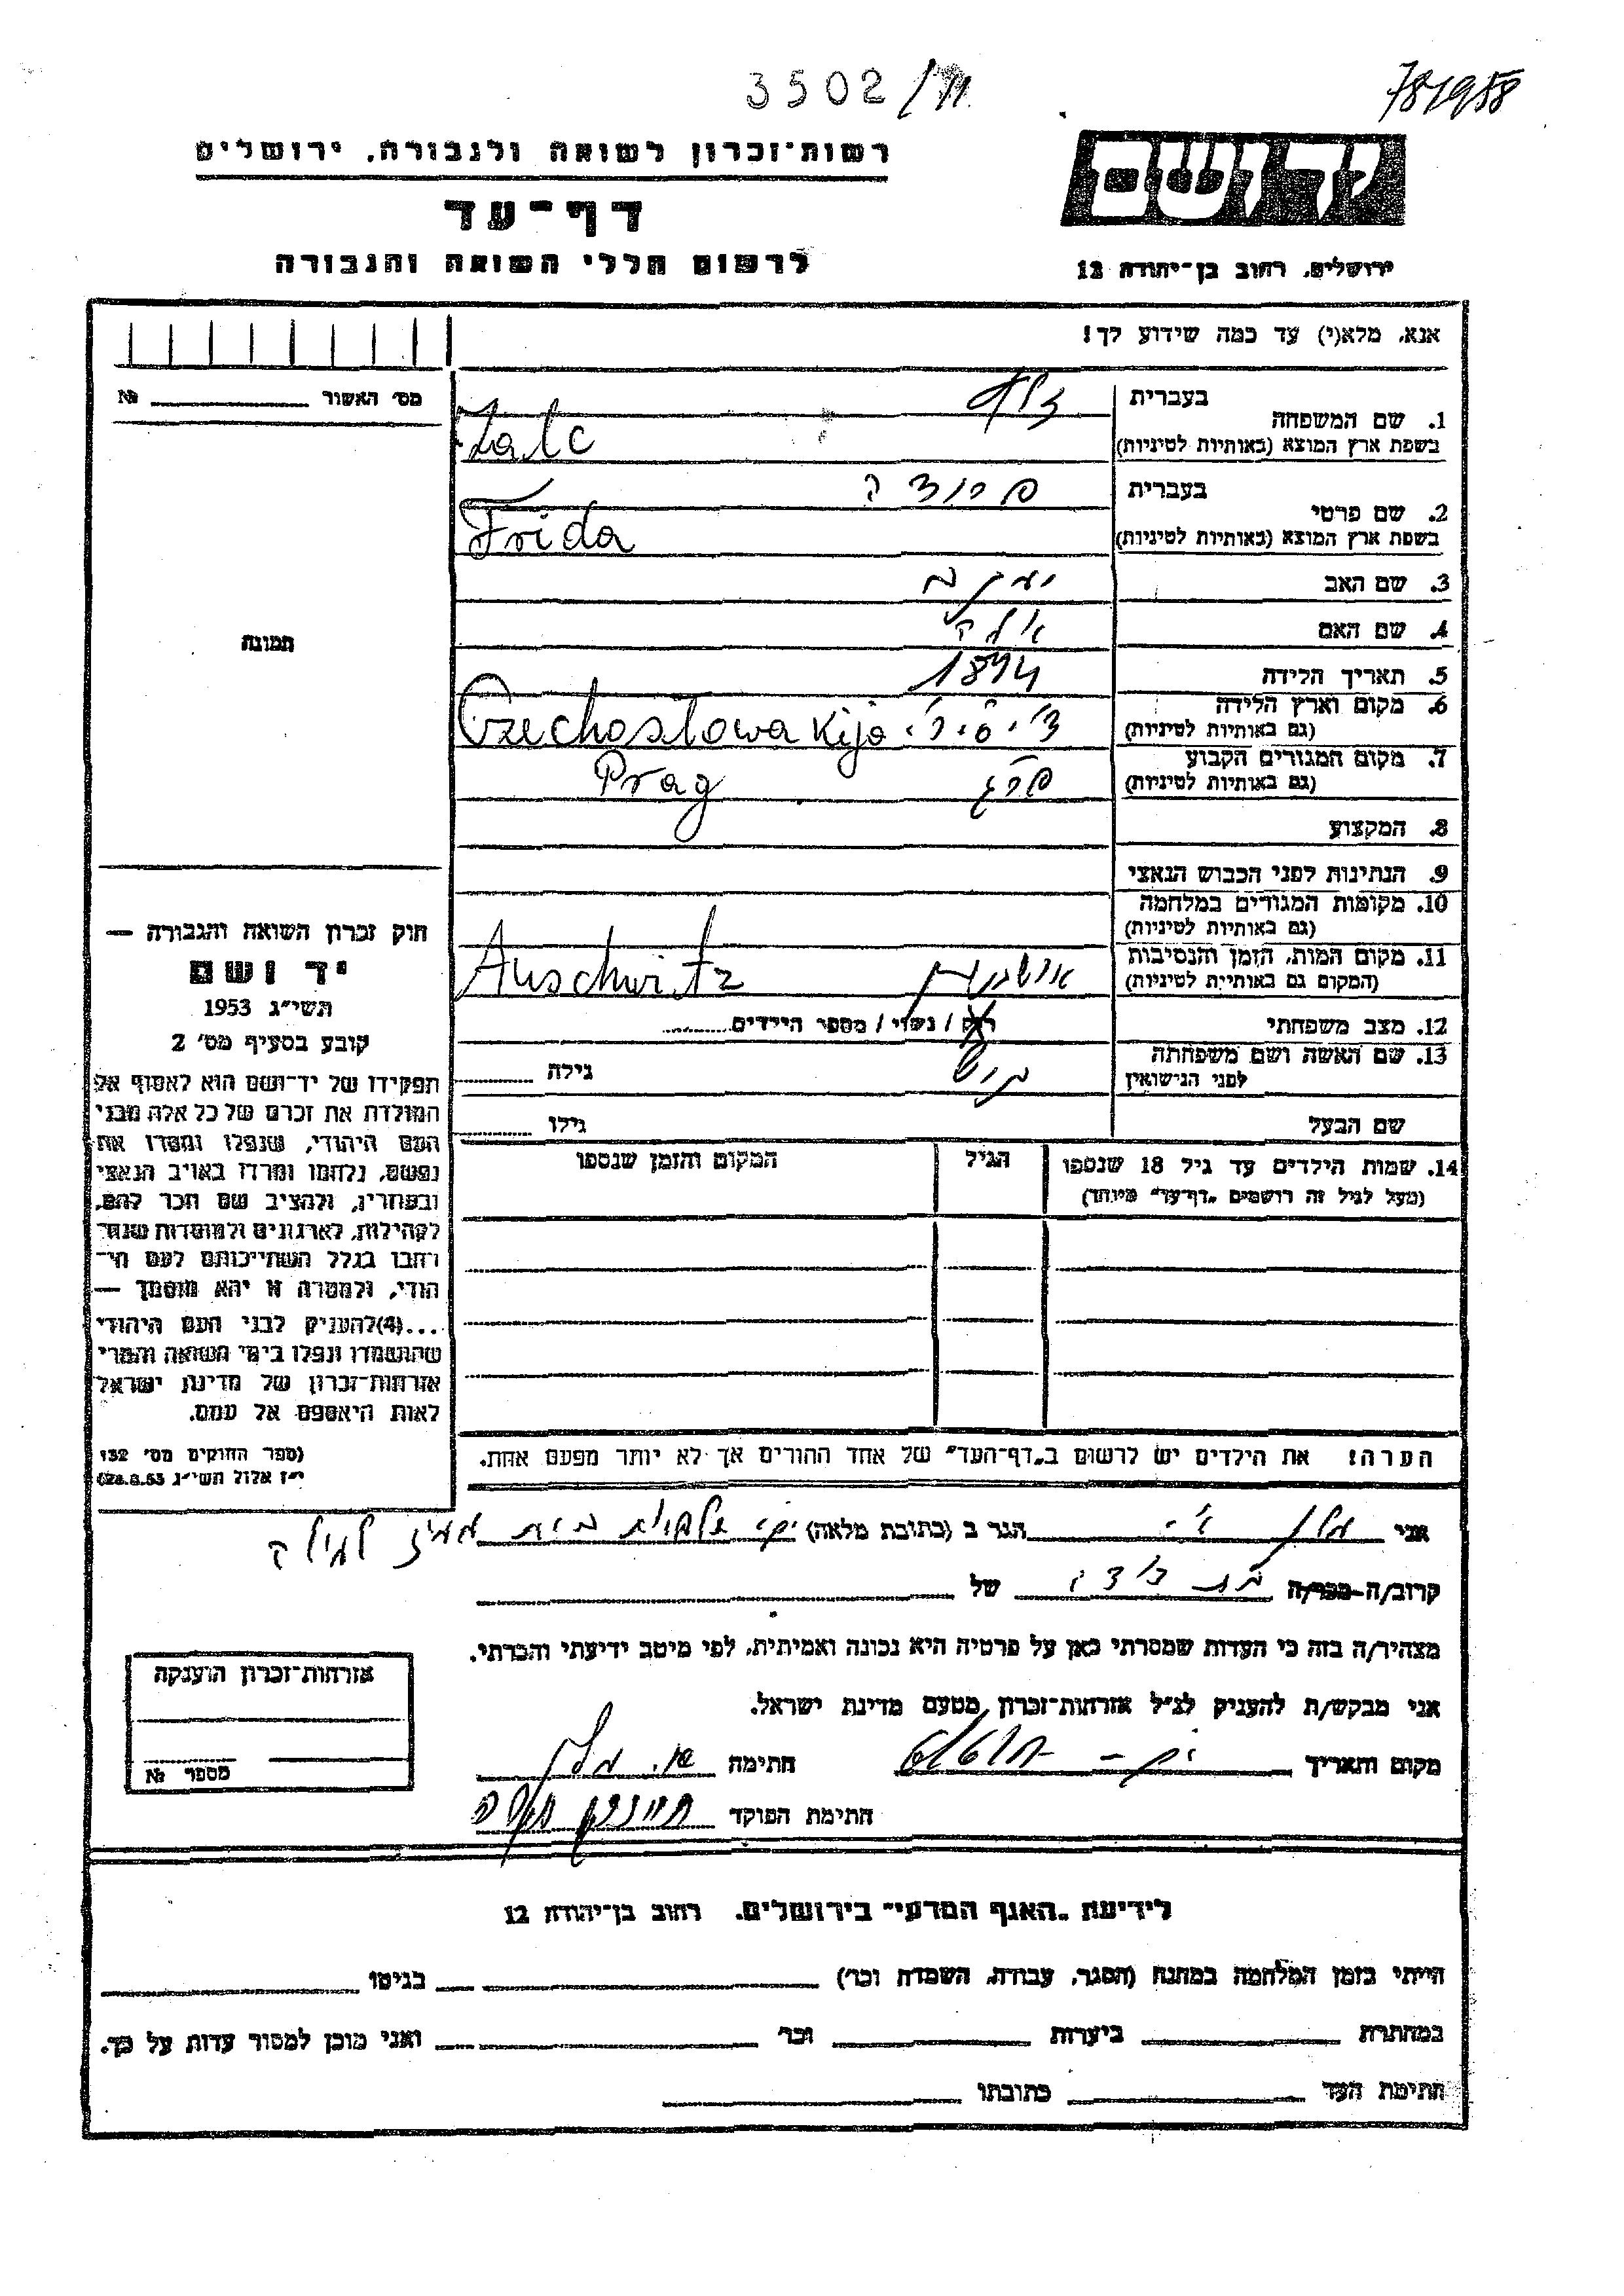 3502/11
781988
יד ושם
ירושלים, רחוב בן־יהודה 12
רשות־זכרון לשואה ולגבורה, ירושלים
דף־עד
לרשום חללי השואה והגבורה
אנא, מלא(י) עד כמה שידוע לך!
מס׳ האשור № 
1. שם המשפחה
בעברית זלץ
בשפת ארץ המוצא (באותיות לטיניות) Zalc
2. שם פרטי
בעברית פרידה
בשפת ארץ המוצא (באותיות לטיניות) Frida
3. שם האב יעקב
4. שם האם
5. תאריך הלידה 1894
6. מקום וארץ הלידה
(גם באותיות לטיניות) Czechosłowakija
7. מקום המגורים הקבוע
(גם באותיות לטיניות) פרג Prag
8. המקצוע
9. הנתינות לפני הכבוש הנאצי
10. מקומות המגורים במלחמה
(גם באותיות לטיניות)
11. מקום המות, הזמן והנסיבות
(המקום גם באותיית לטיניות) Auschwitz
12. מצב משפחתי רוק / נשוי / מספר הילדים
13. שם האשה ושם משפחתה
לפני הנישואין גילה
שם הבעל גילו
14. שמות הילדים עד גיל 18 שנספו
(מעל לגיל זה רושמים „דף־עד״ מיוחד)
הגיל
המקום והזמן שנספו
הערה: את הילדים יש לרשום ב„דף־העד״ של אחד ההורים אך לא יותר מפעם אחת.
תמונה
חוק זכרון השואה והגבורה —
יד ושם
תשי״ג 1953
קובע בסעיף מס׳ 2
תפקידו של יד־ושם הוא לאסוף אל
המולדת את זכרם של כל אלה מבני
העם היהודי, שנפלו ומסרו את
נפשם, נלחמו ומרדו באויב הנאצי
ובעוזריו, ולהציב שם וזכר להם,
לקהילות, לארגונים ולמוסדות שנח־
רבו בגלל השתייכותם לעם הי־
הודי, ולמטרה זו יהא מוסמך —
...(4)להעניק לבני העם היהודי
שהושמדו ונפלו בימי השואה והמרי
אזרחות־זכרון של מדינת ישראל
לאות היאספם אל עמם.
(ספר החוקים מס׳ 132
י״ז אלול תשי״ג 28.8.53)
אני הגר ב (כתובת מלאה)
קרוב/ה מכר/ה של
מצהיר/ה בזה כי העדות שמסרתי כאן על פרטיה היא נכונה ואמיתית, לפי מיטב ידיעתי והכרתי.
אני מבקש/ת להעניק לנ״ל אזרחות־זכרון מטעם מדינת ישראל.
מקום ותאריך חתימה
חתימת הפוקד
אזרחות־זכרון הוענקה
מספר №
לידיעת „האגף המדעי״ בירושלים. רחוב בן־יהודה 12
הייתי בזמן המלחמה במחנה (הסגר, עבודה, השמדה וכו׳) בגיטו
במחתרת ביערות וכו׳ ואני מוכן למסור עדות על כך.
חתימת העד כתובתו